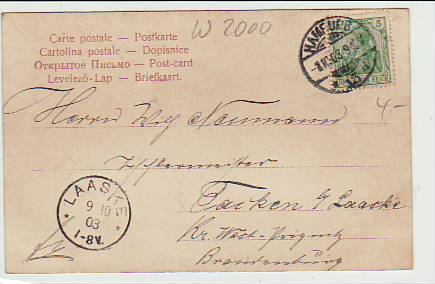 W 2000
Carte postale — Postkarte
Cartolina postale — Dopisnice
Открытое Письмо — Post-card
Levelező-Lap — Briefkaart.
HAMBURG
5
4-
Herrn Wilh Naumann
Tischlermeister
LAASKE
9 10
03
1-8V.
Tacken b/ Laaske
Kr. West-Prignitz
Brandenburg